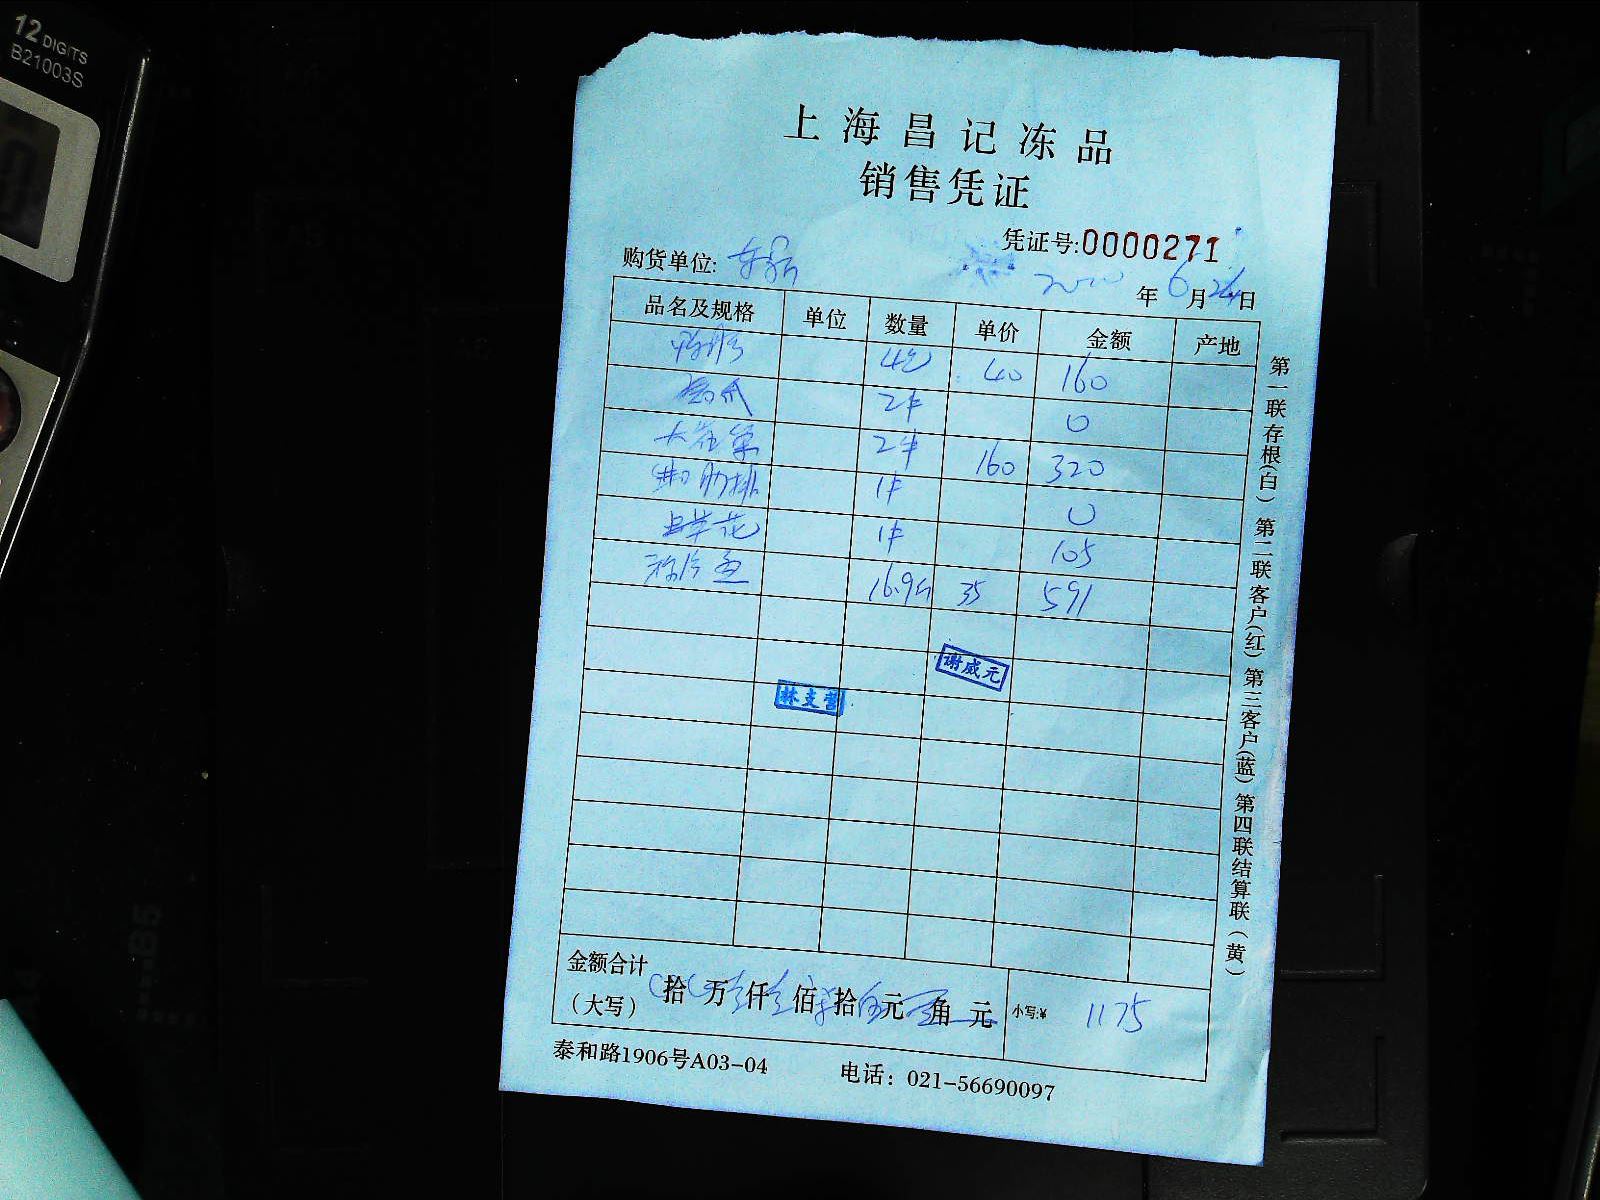 12 DIGITS
B21003S
上海昌记冻品
销售凭证
凭证号:0000271
购货单位:
年 6 月 24 日
品名及规格 单位 数量 单价 金额 产地
4 40 160
2件 0
大花 2件 160 320
进口肋排 1件 0
1件 105
16.9斤 35 591
谢威元
林支营
金额合计
(大写) 拾 万 仟 佰 拾 元 角 元 小写:¥ 1175
泰和路1906号A03-04 电话: 021-56690097
第一联存根(白) 第二联客户(红) 第三客户(蓝) 第四联结算联(黄)